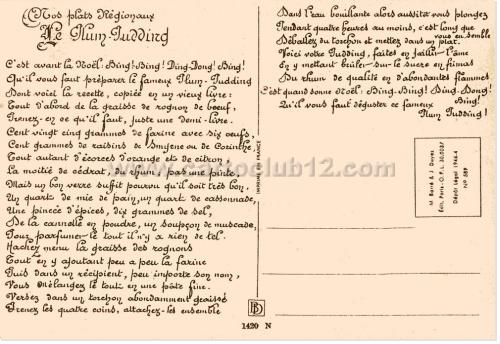 Nos plats Régionaux
Le Plum-Pudding
C'est avant la Noël. Bing! Bing! Ding, Dong! Bing!
Qu'il vous faut préparer le fameux Plum-Pudding
Dont voici la recette, copiée en un vieux livre:
Tout d'abord de la graisse de rognon de boeuf,
Prenez-en ce qu'il faut, juste une demi-livre.
Cent vingt cinq grammes de farine avec six oeufs,
Cent grammes de raisins de Smyrne ou de Corinthe,
Tout autant d'écorces d'orange et de citron,
La moitié de cédrat, du rhum, pas une pinte,
Mais un bon verre suffit pourvu qu'il soit très bon,
Un quart de mie de pain, un quart de cassonade,
Une pincée d'épices, dix grammes de sel,
De la cannelle en poudre, un soupçon de muscade,
Pour parfumer le tout il n'y a rien de tel.
Hachez menu la graisse des rognons
Tout en y ajoutant peu à peu la farine
Puis dans un récipient, peu importe son nom,
Vous mélangez le tout en une pâte fine.
Versez dans un torchon abondamment graissé
Prenez les quatre coins, attachez-les ensemble
Dans l'eau bouillante alors aussitôt vous plongez
Pendant quatre heures au moins, c'est long que vous en semble
Déballez du torchon et mettez dans un plat.
Voici votre Pudding, faites en jaillir l'âme
En y mettant brûler sur le sucre en frimas
Du rhum de qualité en d'abondantes flammes
C'est quand sonne Noël: Bing. Bing. Bing! Ding. Dong!
Bing!
Qu'il vous faut déguster ce fameux
Plum Pudding!
IMPRIMÉ EN FRANCE
M. Barré & J. Dayez
Édit. Paris - O.P.L. 30.0037
Dépôt Légal 1946-4
N° 589
BD
1420 N
www.cartoclub12.com